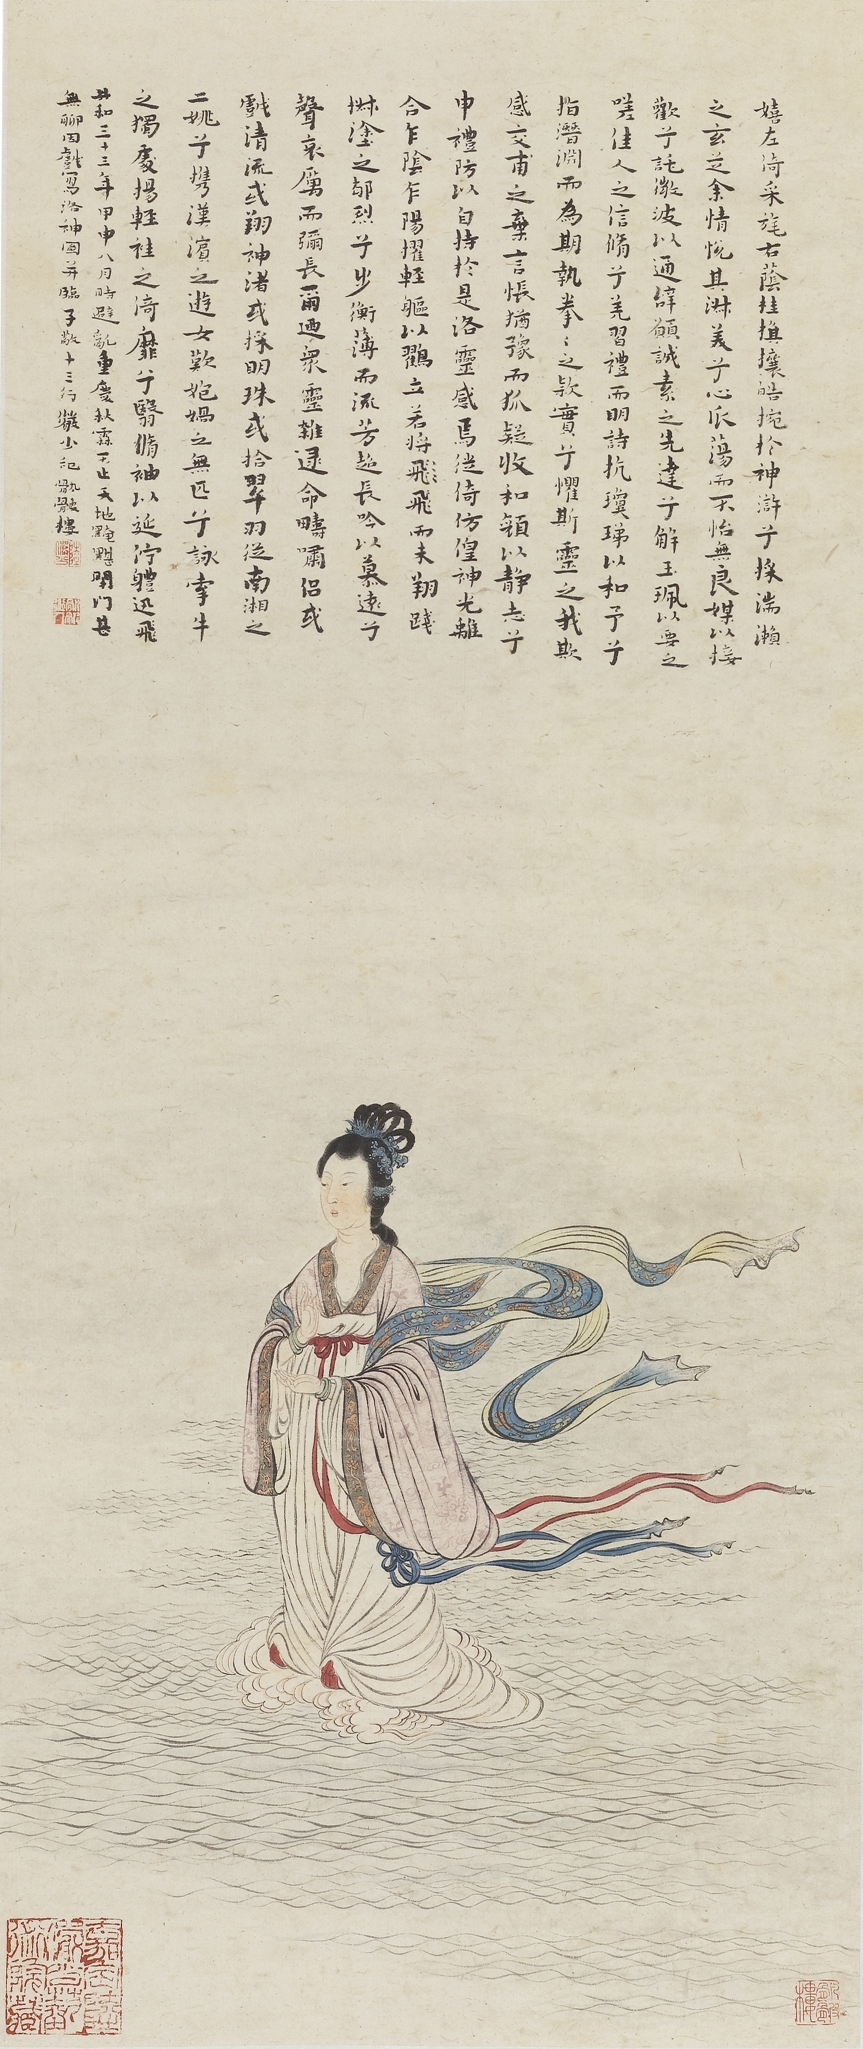 嬉左倚采旄右蔭桂旗攘皓捥於神滸兮採湍瀨
之玄芝余情悅其淑美兮心振蕩而不怡無良媒以接
歡兮託微波以通辭願誠素之先達兮解玉珮以要之
嗟佳人之信脩兮羌習禮而明詩抗瓊珶以和予兮
指潛淵而為期執拳〻之款實兮懼斯靈之我欺
感交甫之棄言悵猶豫而狐疑收和顏以靜志兮
申禮防以自持於是洛靈感焉徙倚仿偟神光離
合乍陰乍陽擢輕軀以鶴立若將飛而未翔踐
椒塗之郁烈兮步衡薄而流芳超長吟以慕遠兮
聲哀厲而彌長爾迺眾靈雜遝命疇嘯侶或
戲清流或翔神渚或採明珠或拾翠羽從南湘之
二姚兮攜漢濱之遊女歎匏媧之無匹兮詠牽牛
之獨處揚輕袿之倚靡兮翳脩袖以延佇體迅飛
共和三十三年甲申八月時避亂重慶秋霖不止天地黯黮閉門甚
無聊因戲寫洛神圖并臨子敬十三行 少記 骩骳樓